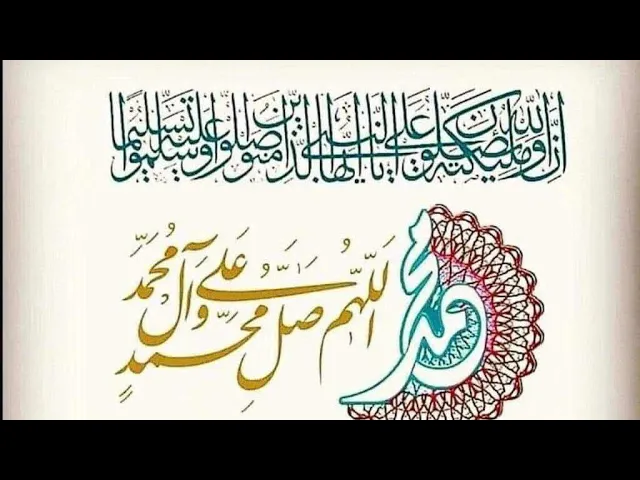 إن الله وملائكته يصلون على النبي يا أيها الذين آمنوا صلوا عليه وسلموا تسليما
اللهم صل على محمد وآل محمد
محمد